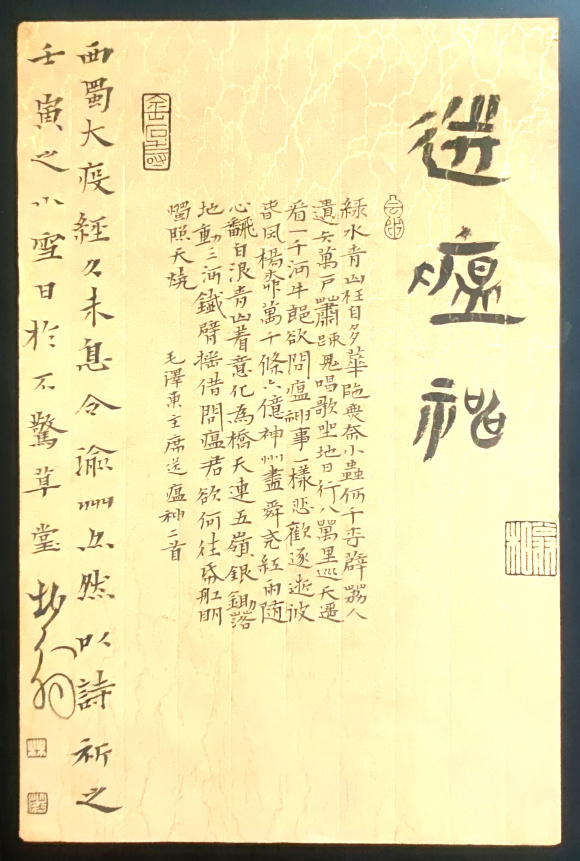 送瘟神
綠水青山枉自多華陁無奈小蟲何千村薜荔人
遺矢萬戶蕭踈鬼唱歌坐地日行八萬里巡天遥
看一千河牛郎欲問瘟神事一樣悲歡逐逝波
春風楊柳萬千條六億神州盡舜堯紅雨隨
心飜白浪青山着意化為橋天連五嶺銀鋤落
地動三河鐵臂搖借問瘟君欲何往帋船明
燭照天燒
毛澤東主席送瘟神二首
西蜀大疫經久未息今渝州亦然以詩祈之
壬寅之小雪日於不驚草堂